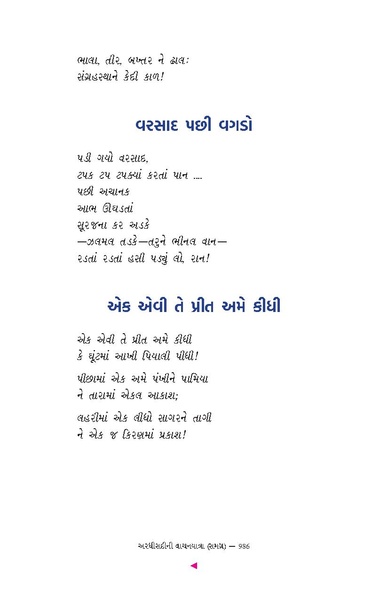 ભાલા, તીર, બખ્તર ને ઢાલ:
સંગ્રહસ્થાને કેદી કાળ!
વરસાદ પછી વગડો
પડી ગયો વરસાદ,
ટપક ટપ ટપક્યાં કરતાં પાન ....
પછી અચાનક
આભ ઊઘડતાં
સૂરજના કર અડકે
—ઝલમલ તડકે—તરુને ભીનલ વાન—
રડતાં રડતાં હસી પડ્યું લો, રાન!
એક એવી તે પ્રીત અમે કીધી
એક એવી તે પ્રીત અમે કીધી
કે ઘૂંટમાં આખી પિયાલી પીધી!
પીછામાં એક અમે પંખીને પામિયા
ને તારામાં એકલ આકાશ;
લહરીમાં એક લીધો સાગરને તાગી
ને એક જ કિરણમાં પ્રકાશ!
અરધીસદીની વાચનયાત્રા (સમગ્ર) — 986